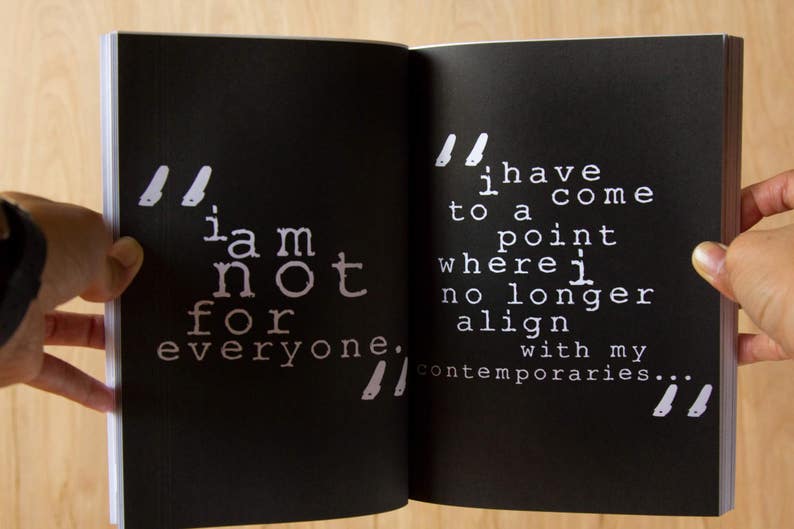 "
i am
not
for
everyone.
"
"
i have
come
to a
point
where i
no longer
align
with my
contemporaries...
"